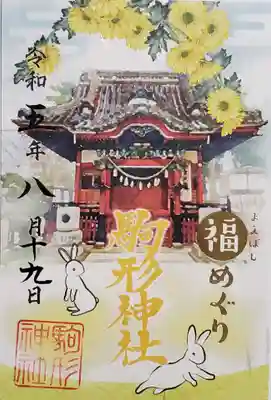 よみぼし
福めぐり
駒形神社
令和五年八月十九日
駒形
神社